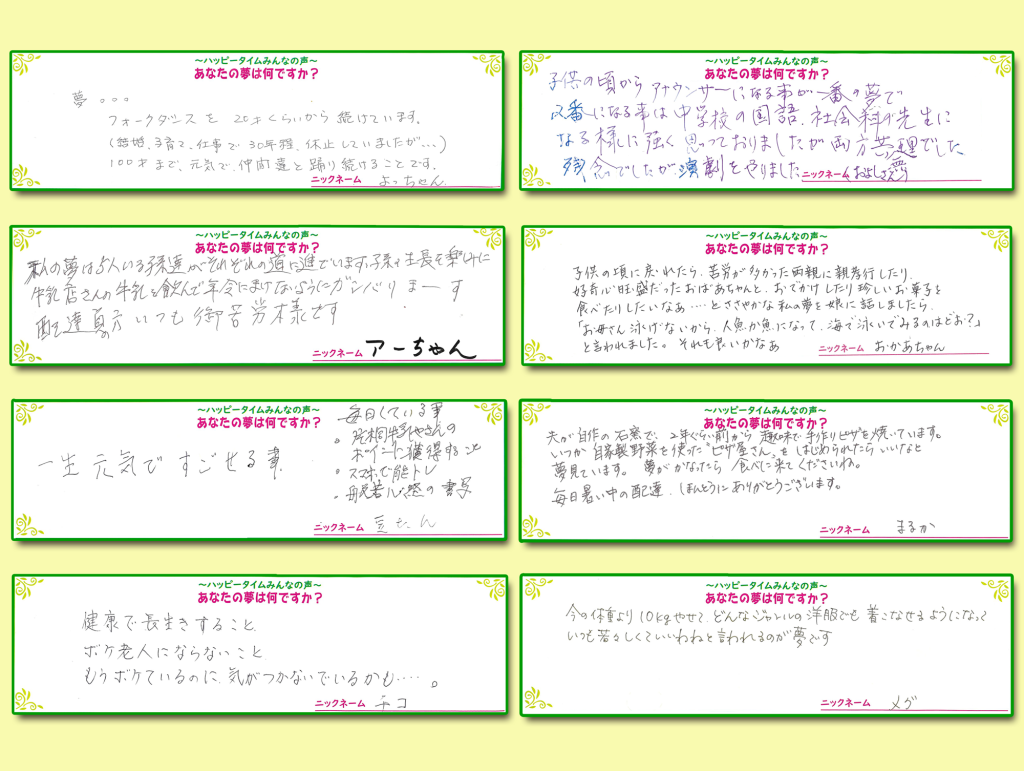 ～ハッピータイムみんなの声～
あなたの夢は何ですか？
夢。。。
フォークダンスを 20才くらいから 続けています。
(結婚、子育て、仕事で 30年程、休止していましたが...)
100才まで、元気で、仲間達と踊り続けることです。
ニックネーム よっちゃん
～ハッピータイムみんなの声～
あなたの夢は何ですか？
子供の頃から アナウンサーになる事が一番の夢で
2番になる事は中学校の国語、社会科の先生に
なる様に強く思っておりましたが両方無理でした
残念でしたが、演劇をやりました
ニックネーム (およしさん)
～ハッピータイムみんなの声～
あなたの夢は何ですか？
私の夢は5人いる子孫達がそれぞれの道に進んでいます。子孫の生長を楽しみに
牛乳店さんの牛乳を飲んで年令にまけないようにガンバリまーす
配達員の方いつも御苦労様です
ニックネーム アーちゃん
～ハッピータイムみんなの声～
あなたの夢は何ですか？
子供の頃に戻れたら、苦労が多かった両親に親孝行したり、
好奇心旺盛だったおばあちゃんと、おでかけしたり珍しいお菓子を
食べたりしたいなぁ……とささやかな私の夢を娘に話しましたら、
「お母さん泳げないから、人魚か魚になって、海で泳いでみるのはどお？」
と言われました。それも良いかなぁ
ニックネーム おかあちゃん
～ハッピータイムみんなの声～
あなたの夢は何ですか？
一生元気ですごせる事
毎日している事
・牛乳やさんの
ポイントに獲得すること
・スマホで脳トレ
・般若心経の書写
ニックネーム 豆たん
～ハッピータイムみんなの声～
あなたの夢は何ですか？
夫が自作の石窯で、2年ぐらい前から 趣味で手作りピザを焼いています。
いつか自家製野菜を使った"ピザ屋さん"をはじめられたらいいなと
夢見ています。 夢がかなったら 食べに来てくださいね。
毎日暑い中の配達、ほんとうにありがとうございます。
ニックネーム まるか
～ハッピータイムみんなの声～
あなたの夢は何ですか？
健康で長生きすること
ボケ老人にならないこと
もうボケているのに、気がつかないでいるかも……。
ニックネーム チコ
～ハッピータイムみんなの声～
あなたの夢は何ですか？
今の体重より10kgやせて、どんなジャンルの洋服でも 着こなせるようになって
いつも若々しくていいわねと言われるのが夢です
ニックネーム メグ